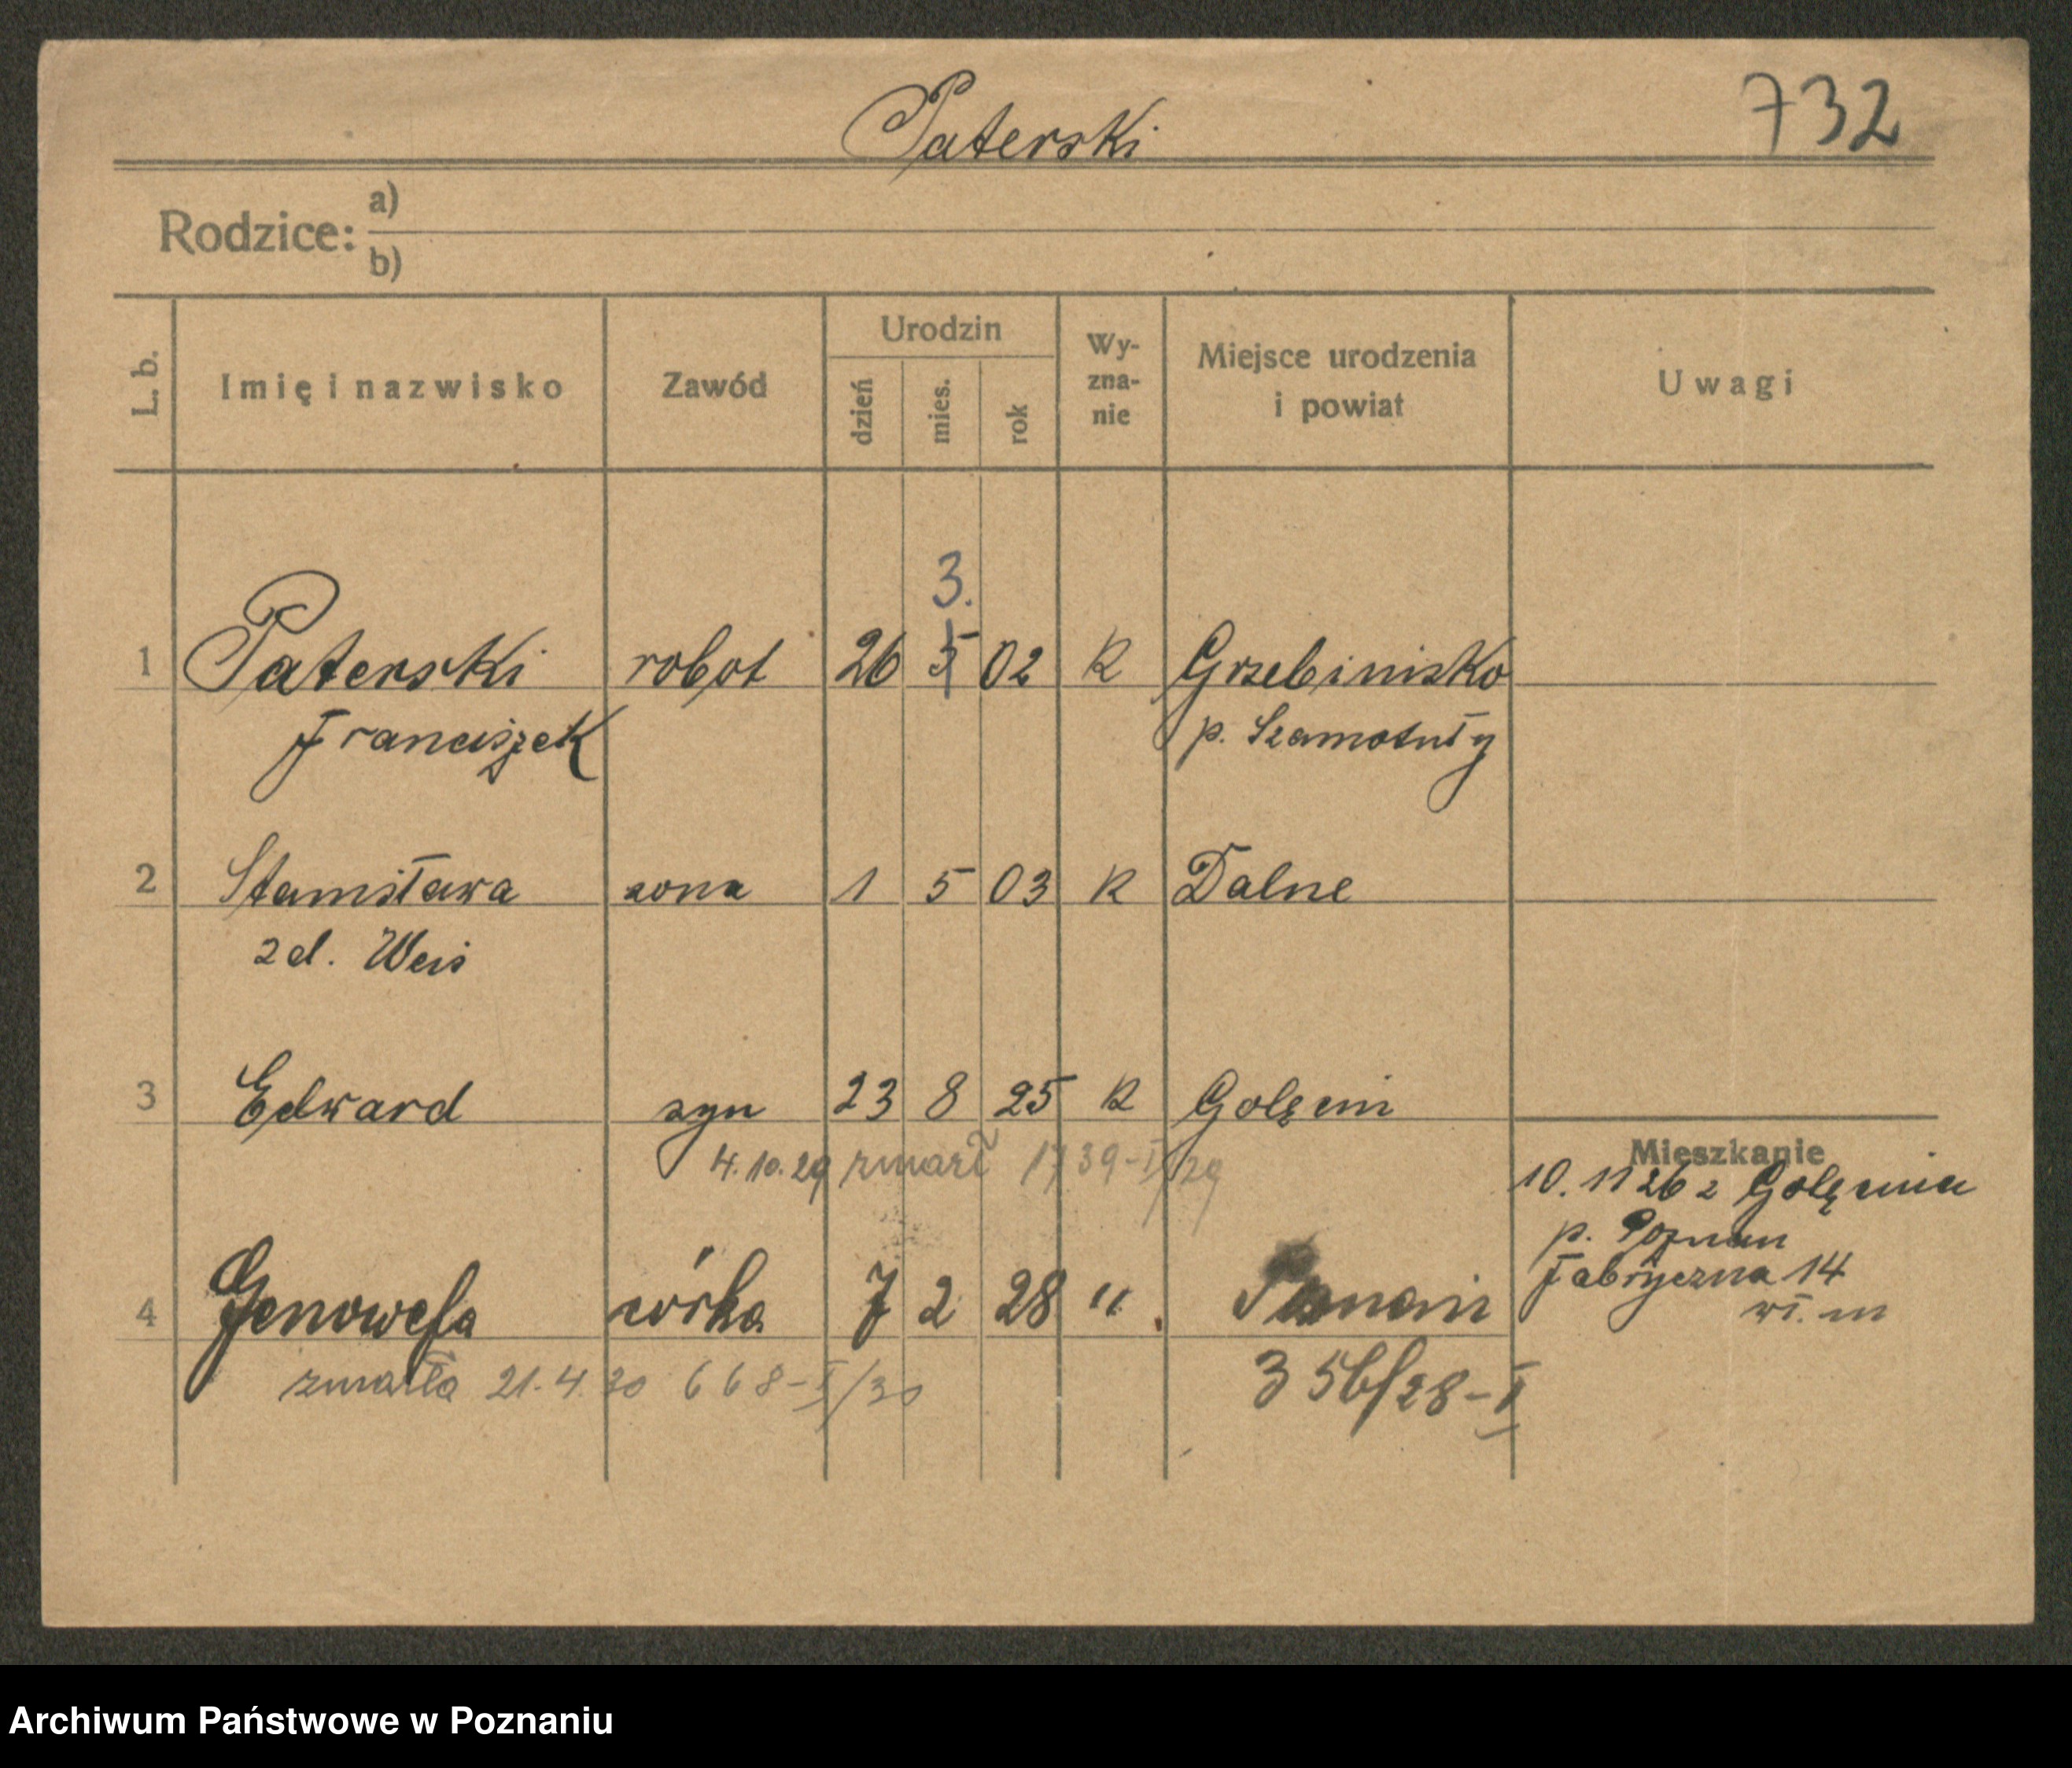 Paterski 732
Rodzice: a)
b)
L. b. Imię i nazwisko Zawód Urodzin dzień mies. rok Wy-zna-nie Miejsce urodzenia i powiat Uwagi
3.
1 Paterski robot 26 5 02 K Grzebinisko
Franciszek p. Szamotuły
2 Stanisława zona 1 5 03 K Dalne
zd. Weis
3 Edward syn 23 8 25 K Golęcin
4.10.29 zmarł 1739-I/29
Mieszkanie
10. 11 26 z Golęcina
p. Poznan
Fabryczna 14
wł. m
4 Genowefa córka 7 2 28 " Poznań
zmarła 21.4.30 668-I/30 356/28-I
Archiwum Państwowe w Poznaniu